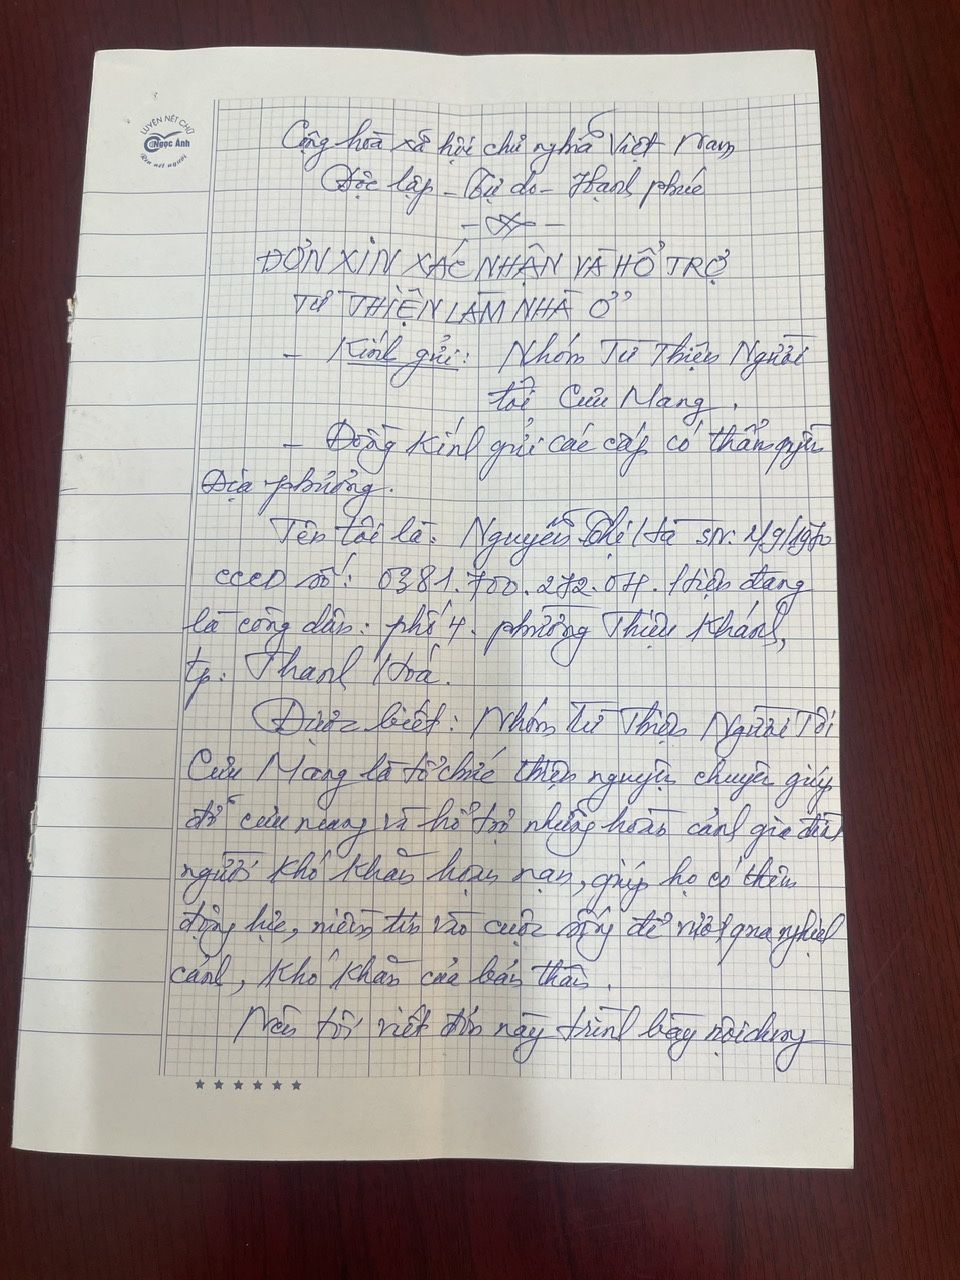 LUYỆN NÉT CHỮ
Ngọc Ánh
Rèn nết người
Cộng hòa xã hội chủ nghĩa Việt Nam
Độc lập - Tự do - Hạnh phúc
ĐƠN XIN XÁC NHẬN VÀ HỖ TRỢ
TỪ THIỆN LÀM NHÀ Ở
- Kính gửi: Nhóm Từ Thiện Người
tôi Cưu Mang.
- Đồng Kính gửi các cấp có thẩm quyền
Địa phương.
Tên tôi là: Nguyễn Thị Hà sn: 2/9/1970
CCCD số: 0381.700.272.07. Hiện đang
là công dân: phố 4. phường Thiệu Khánh,
tp: Thanh Hoá.
Được biết: Nhóm Từ Thiện Người Tôi
Cưu Mang là tổ chức thiện nguyện chuyên giúp
đỡ cưu mang và hỗ trợ những hoàn cảnh gia đình
người khó khăn hoạn nạn, giúp họ có thêm
động lực, niềm tin vào cuộc sống để vượt qua nghịch
cảnh, khó khăn của bản thân.
Nên tôi viết đơn này trình bày nội dung